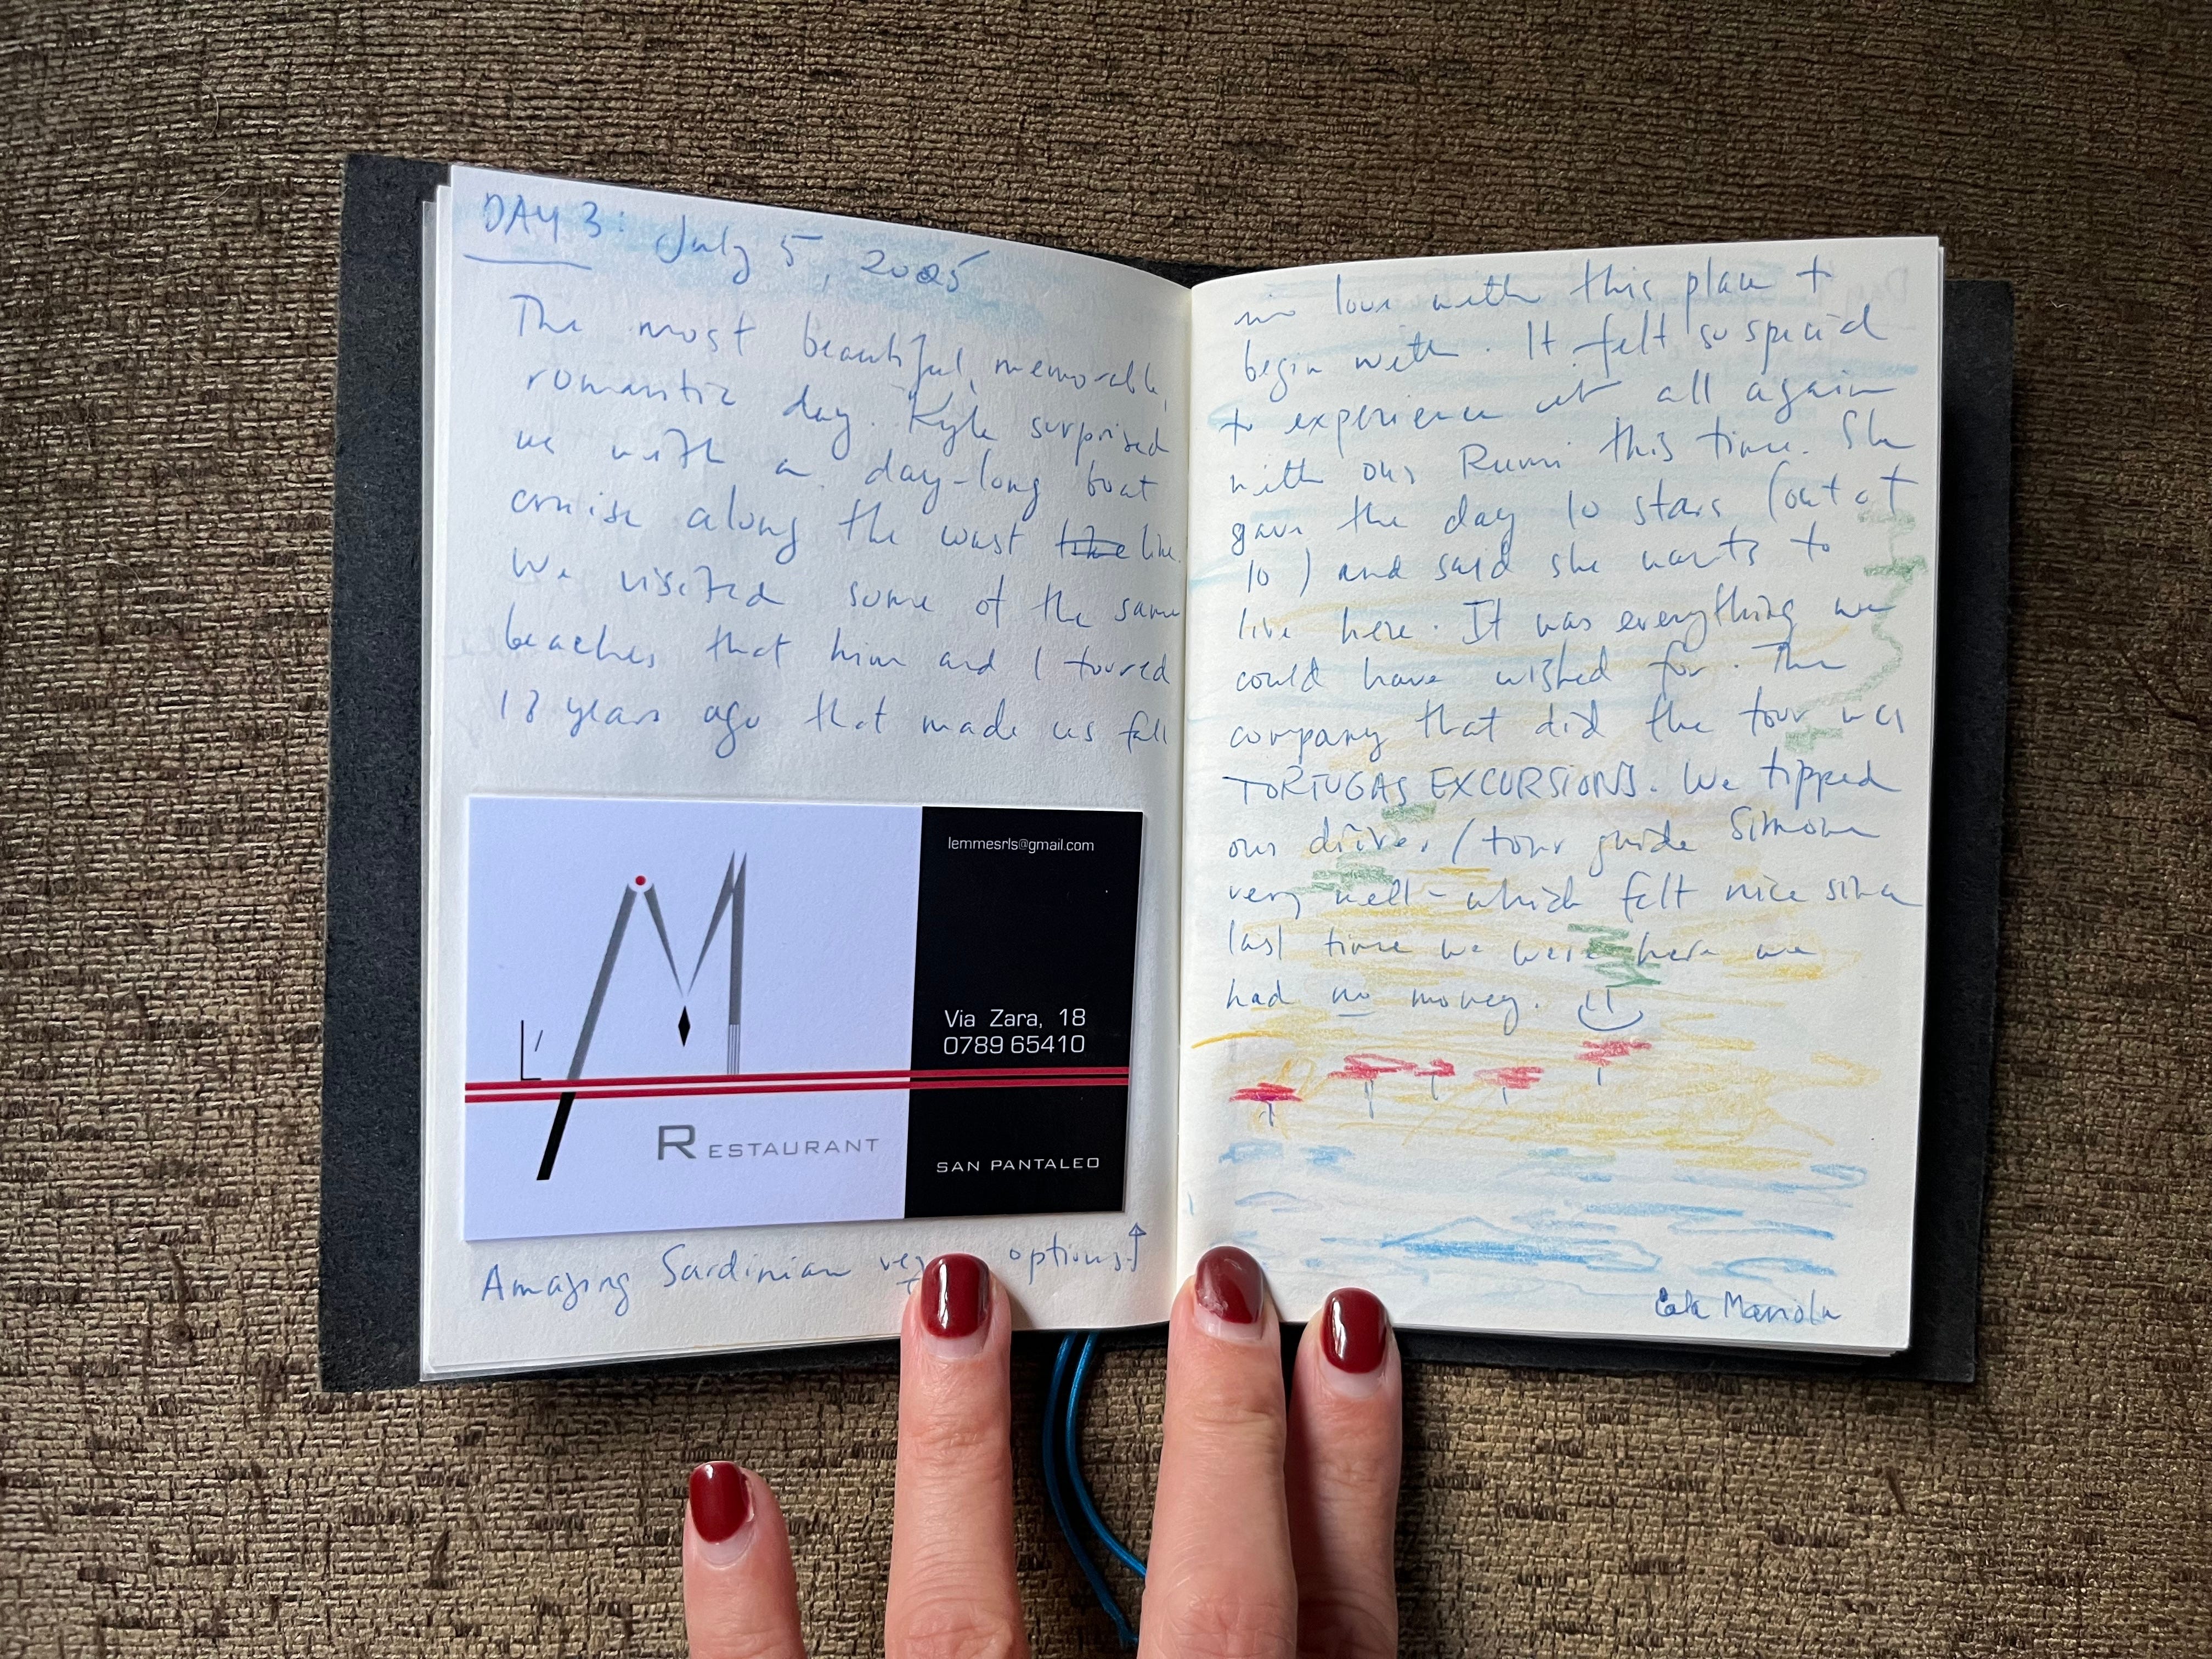 DAY 3: July 5, 2025
The most beautiful, memorable,
romantic day. Kyle surprised
us with a day-long boat
cruise along the coast line.
We visited some of the same
beaches that him and I toured
13 years ago that made us fall
lemmesrls@gmail.com
L'
Via Zara, 18
0789 65410
RESTAURANT
SAN PANTALEO
Amazing Sardinian options ↑
in love with this place to
begin with. It felt so special
to experience it all again
with our Rumi this time. She
gave the day 10 stars (out of
10) and said she wants to
live here. It was everything we
could have wished for. The
company that did the tour was
TORTUGAS EXCURSIONS. We tipped
our driver/tour guide Simone
very well - which felt nice since
last time we were here we
had no money.
Cala Mariolu